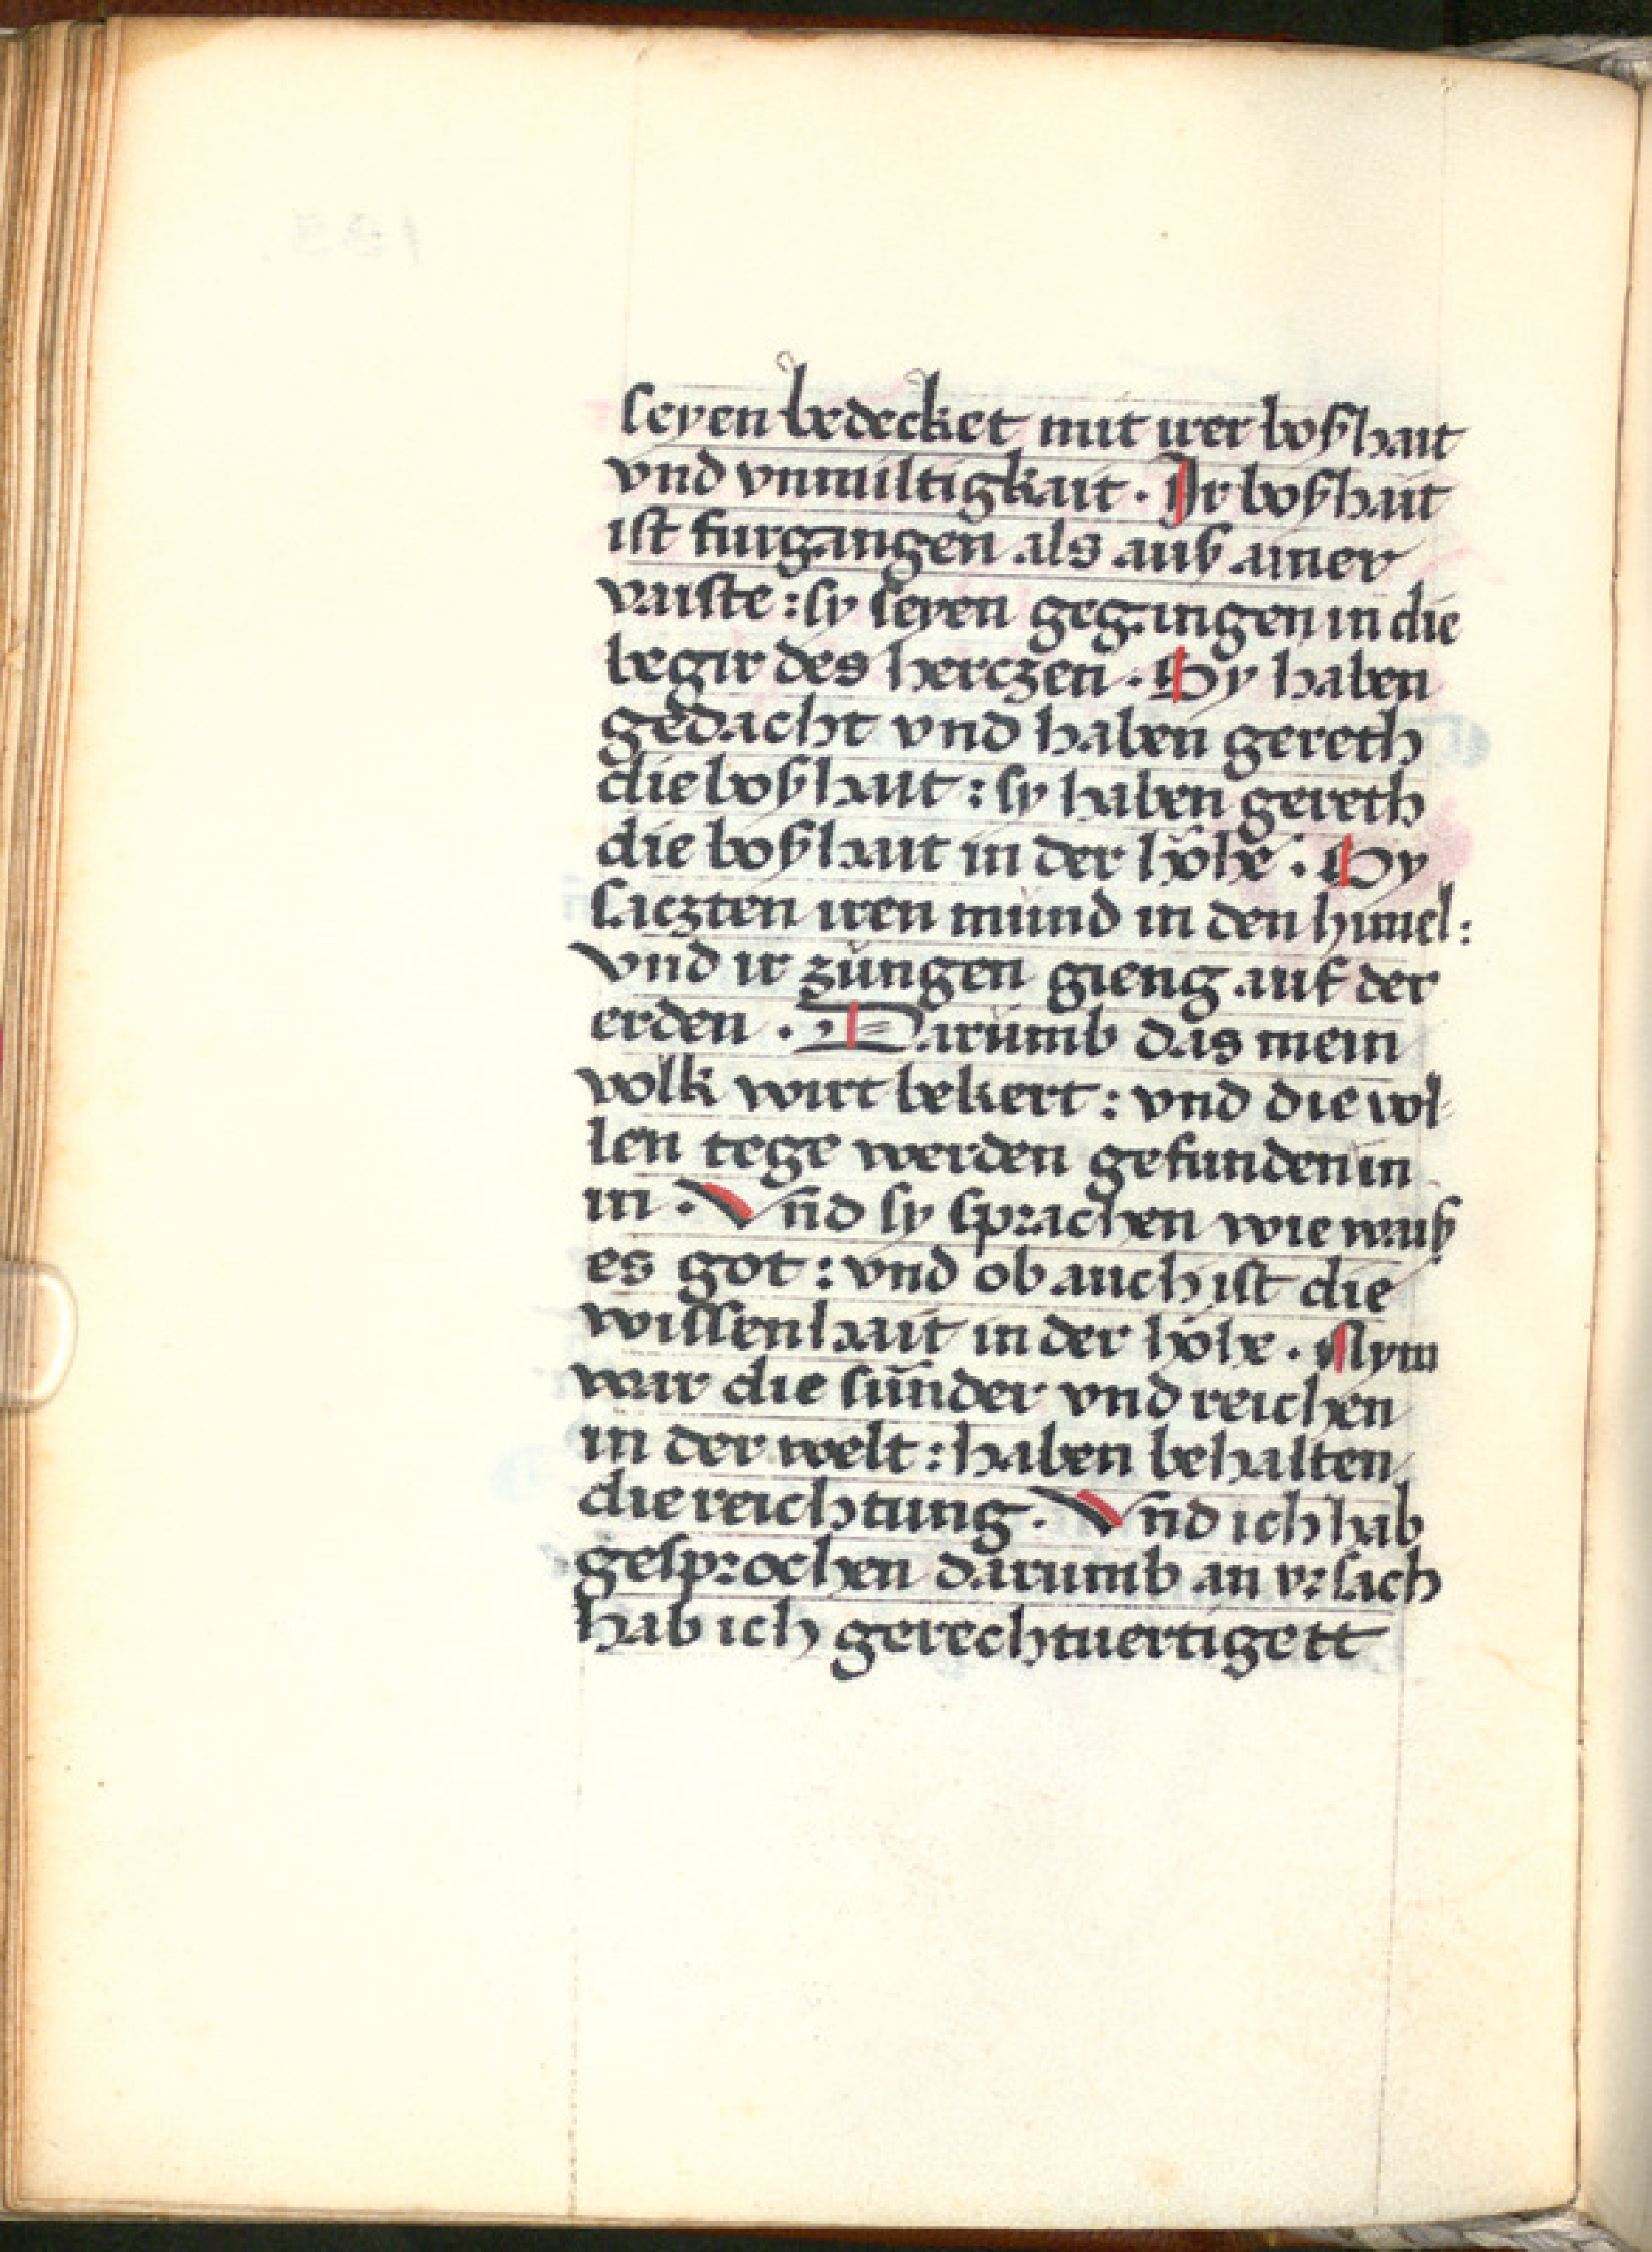 seyen bedecket mit irer boßhait
vnd vnmiltigkait · Ir boßhait
ist furgangen als auß ainer
vaiste : sy seyen gegangen in die
begir des herczen · Sy haben
gedacht vnd haben gereth
die boßhait : sy haben gereth
die boßhait in der höhe · Sy
saczten iren mund in den himel :
vnd ir zungen gieng auf der
erden · Darumb das mein
volk wirt bekert : vnd die vol-
len tege werden gefunden in
in · Vnd sy sprachen wie waiß
es got : vnd ob auch ist die
wissenhait in der höhe · Nym
war die sünder vnd reichen
in der welt : haben behalten
die reichtung · Vnd ich hab
gesprochen darumb an vrsach
hab ich gerechtuertigett